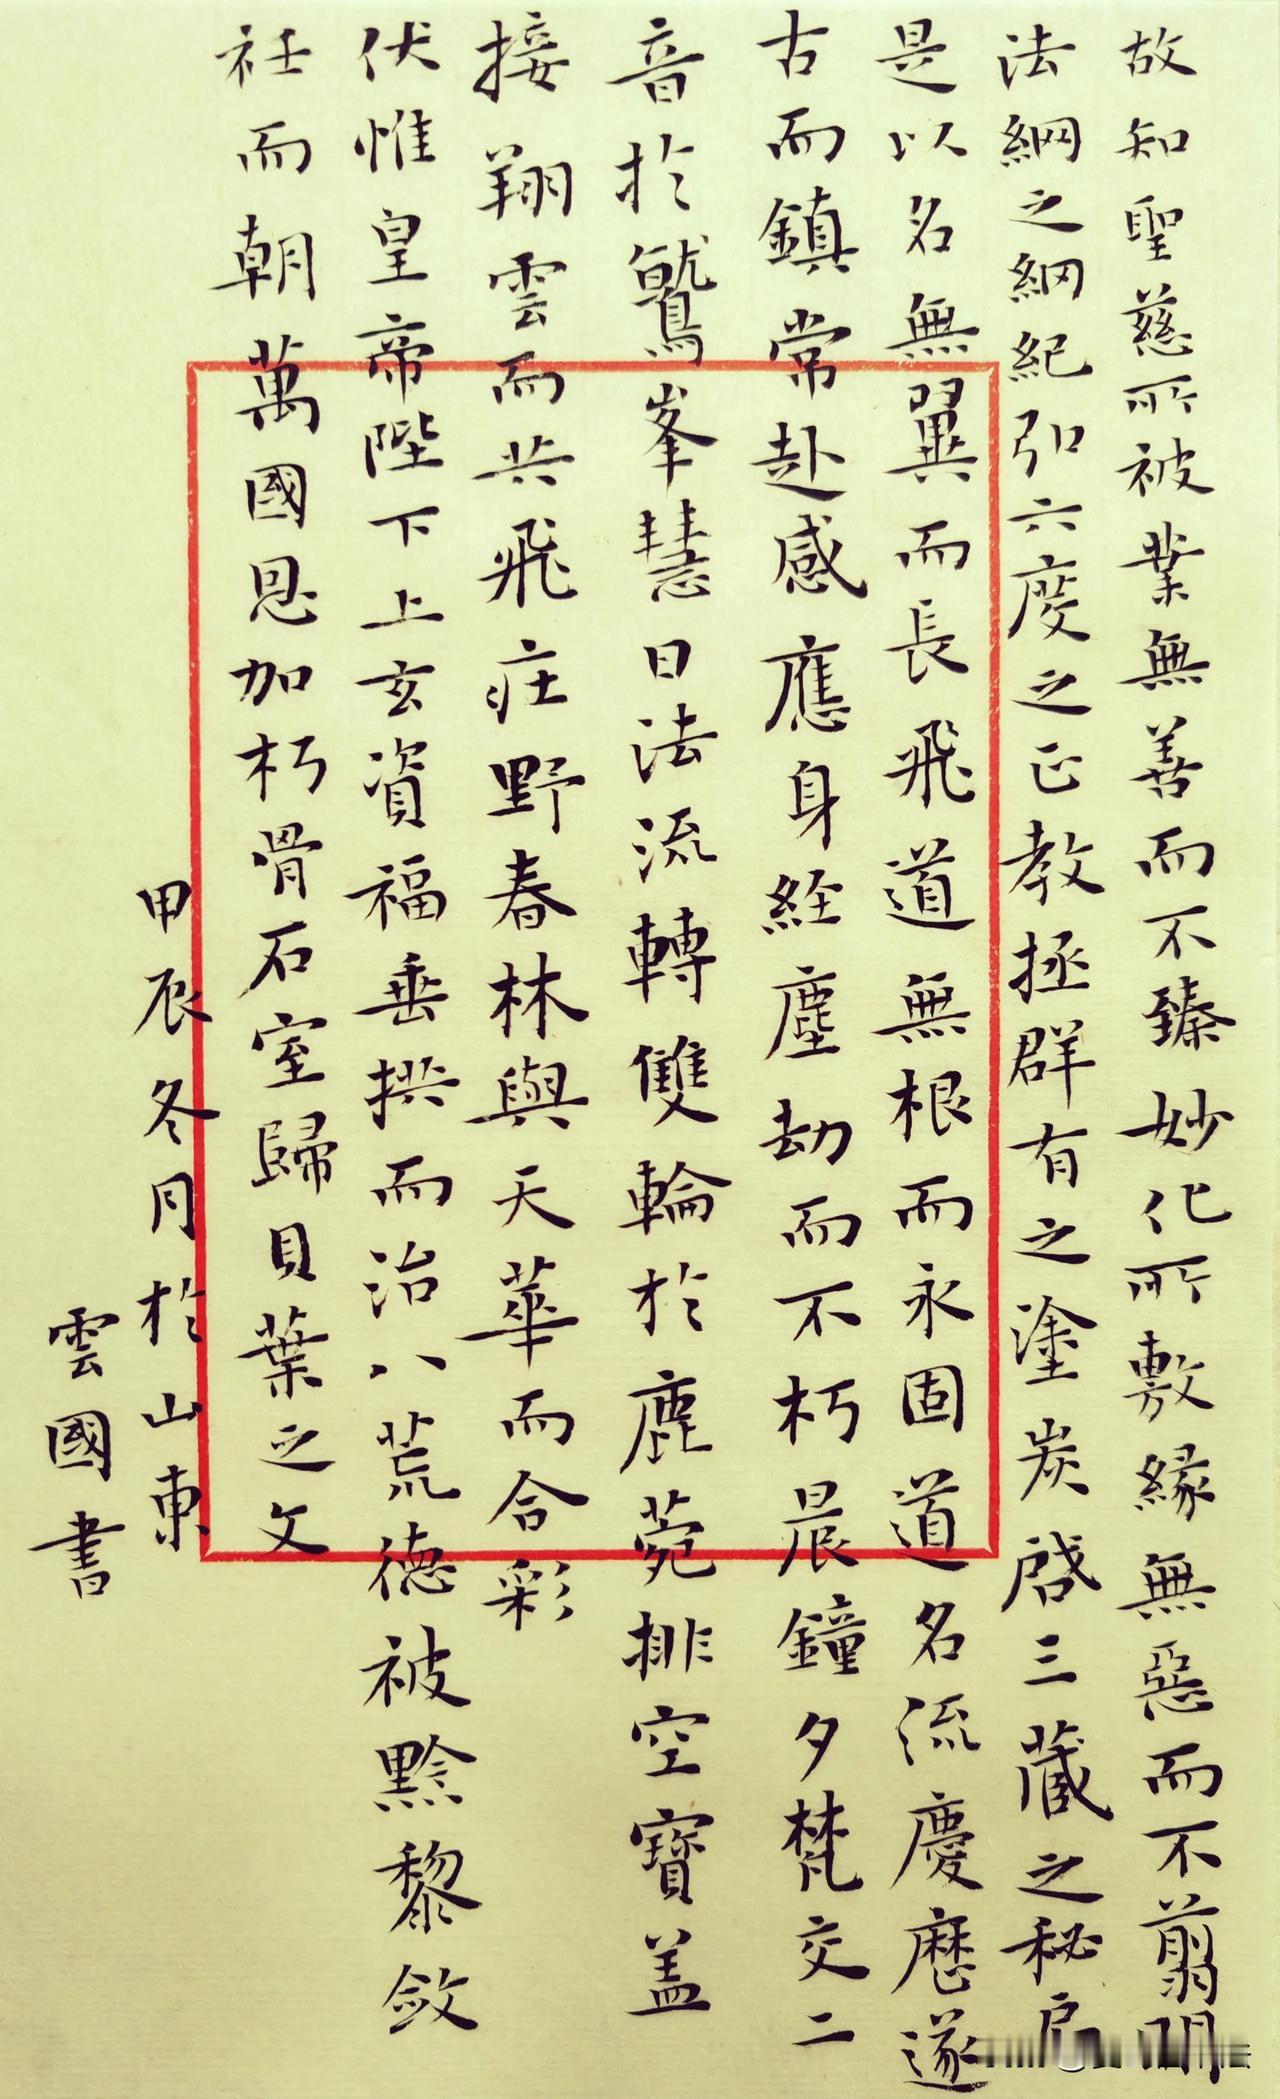 故知聖慈所被業無善而不臻妙化所敷緣無惡而不翦開
法綱之綱紀引六度之正教拯群有之塗炭啓三藏之秘扃
是以名無翼而長飛道無根而永固道名流慶歷遂
古而鎮常赴感應身經塵劫而不朽晨鐘夕梵交二
音於鷲峯慧日法流轉雙輪於鹿菀排空寶蓋
接翔雲而共飛莊野春林與天華而合彩
伏惟皇帝陛下上玄資福垂拱而治八荒德被黔黎斂
衽而朝萬國恩加朽骨石室歸貝葉之文
甲辰冬月於山東
雲國書